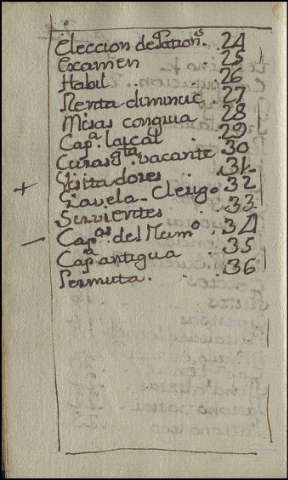 Eleccion de Pation.ˢ 24
Examen 25
Habil 26
Renta diminuc. 27
Misas congrua 28
Cap.ª laical 29
Curas vacante 30
Visitadores 31
+ Gavela Clergo 32
Sirvientes 33
— Cap.ªˢ del Num.º 34
Cap.ª antigua 35
Permuta. 36